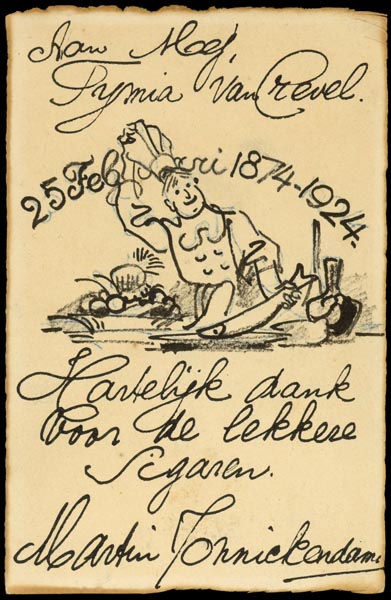 Aan Mej,
Pymia van Crevel.
25 Februari 1874-1924.
Hartelijk dank
voor de lekkere
Sigaren.
Martin Monnickendam